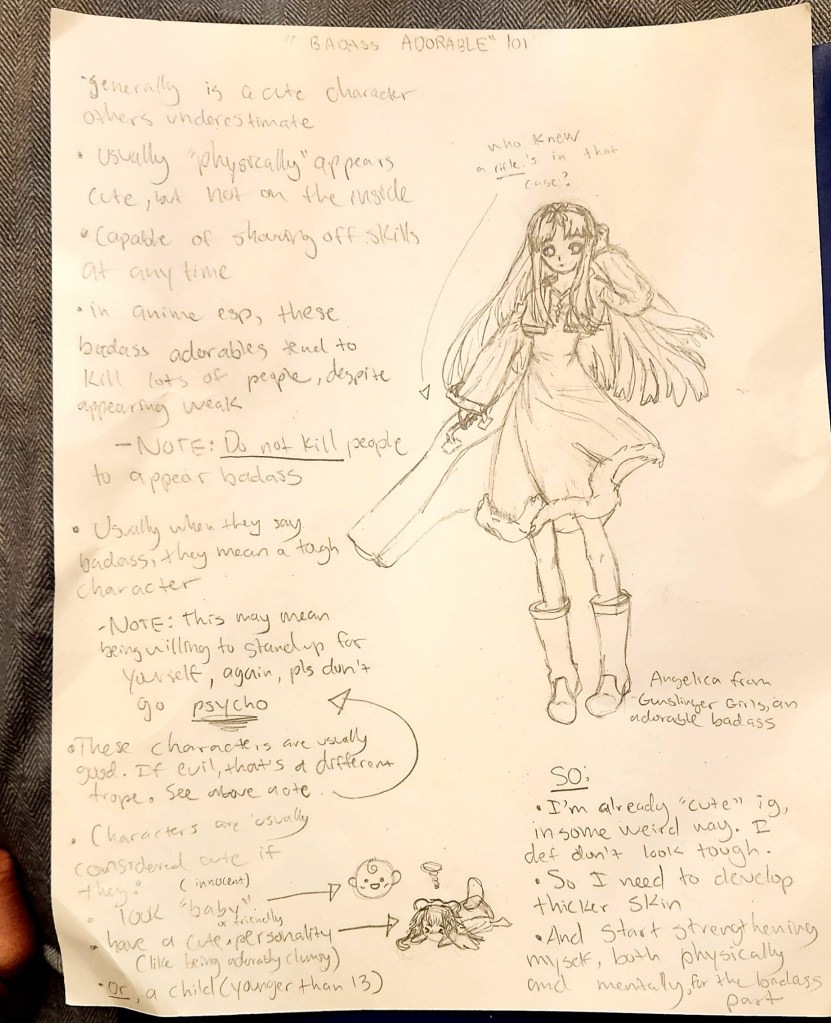 "BADASS ADORABLE" 101
• generally is a cute character
others underestimate
• Usually "physically" appears
cute, but not on the inside
• Capable of showing off skills
at any time
• in anime esp, these
badass adorables tend to
kill lots of people, despite
appearing weak
- NOTE: Do not kill people
to appear badass
• Usually when they say
badass, they mean a tough
character
- NOTE: this may mean
being willing to stand up for
yourself, again, pls don't
go psycho
• These characters are usually
good. If evil, that's a different
trope. See above note
• Characters are usually
considered cute if
they:
(innocent)
• look "baby"
or friendly
• have a cute personality
(like being adorably clumsy)
• or, a child (younger than 13)
who knew
a rifle's in that
case?
Angelica from
Gunslinger Girls, an
adorable badass
SO:
• I'm already "cute" ig,
in some weird way. I
def don't look tough.
• So I need to develop
thicker skin
• And start strengthening
myself, both physically
and mentally, for the badass
part